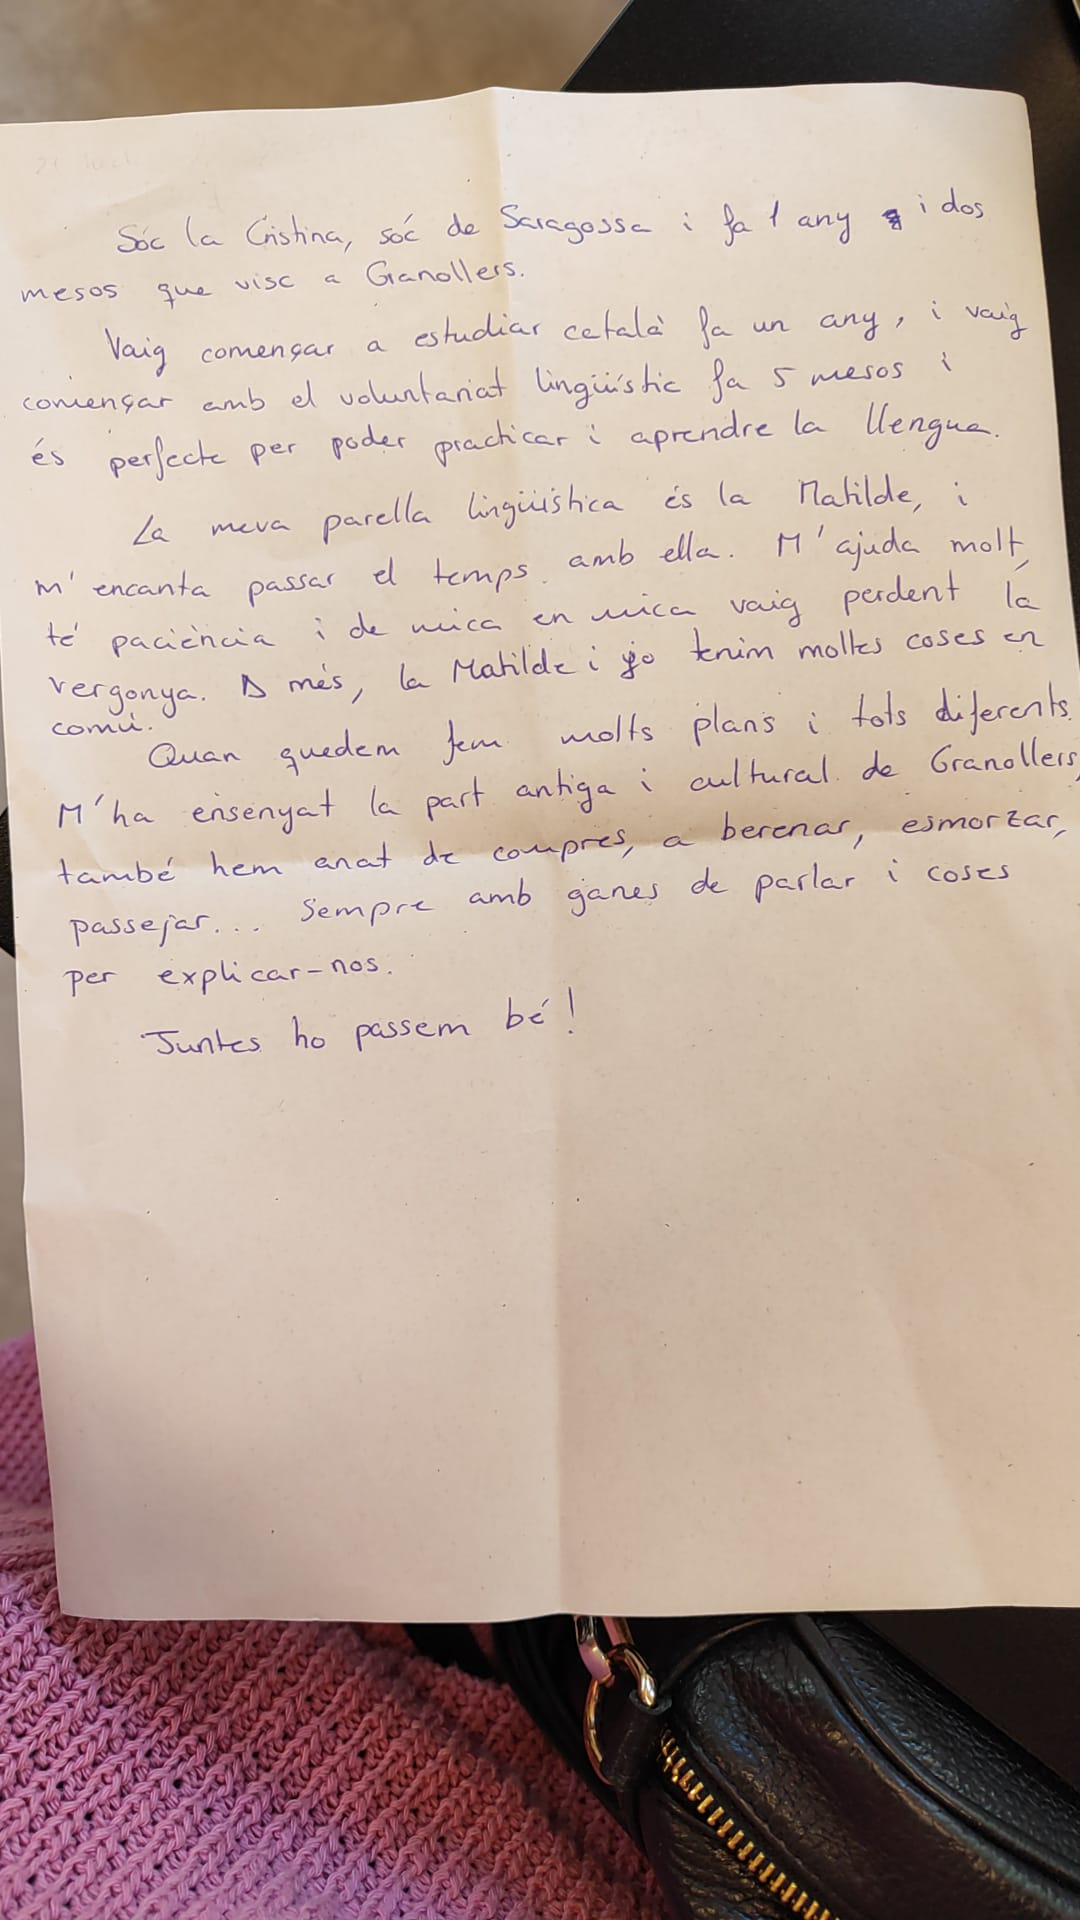 Sóc la Cristina, sóc de Saragossa i fa 1 any i dos
mesos que visc a Granollers.
Vaig començar a estudiar català fa un any, i vaig
començar amb el voluntariat lingüístic fa 5 mesos i
és perfecte per poder practicar i aprendre la llengua.
La meva parella lingüística és la Matilde, i
m'encanta passar el temps amb ella. M'ajuda molt,
té paciència i de mica en mica vaig perdent la
vergonya. A més, la Matilde i jo tenim moltes coses en
comú.
Quan quedem fem molts plans i tots diferents.
M'ha ensenyat la part antiga i cultural de Granollers,
també hem anat de compres, a berenar, esmorzar,
passejar... Sempre amb ganes de parlar i coses
per explicar-nos.
Juntes ho passem bé!